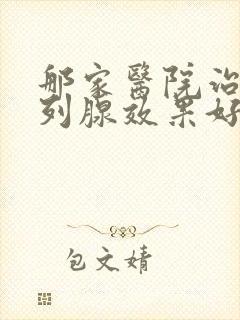 那家醫院治
列腺效果好
包文婧